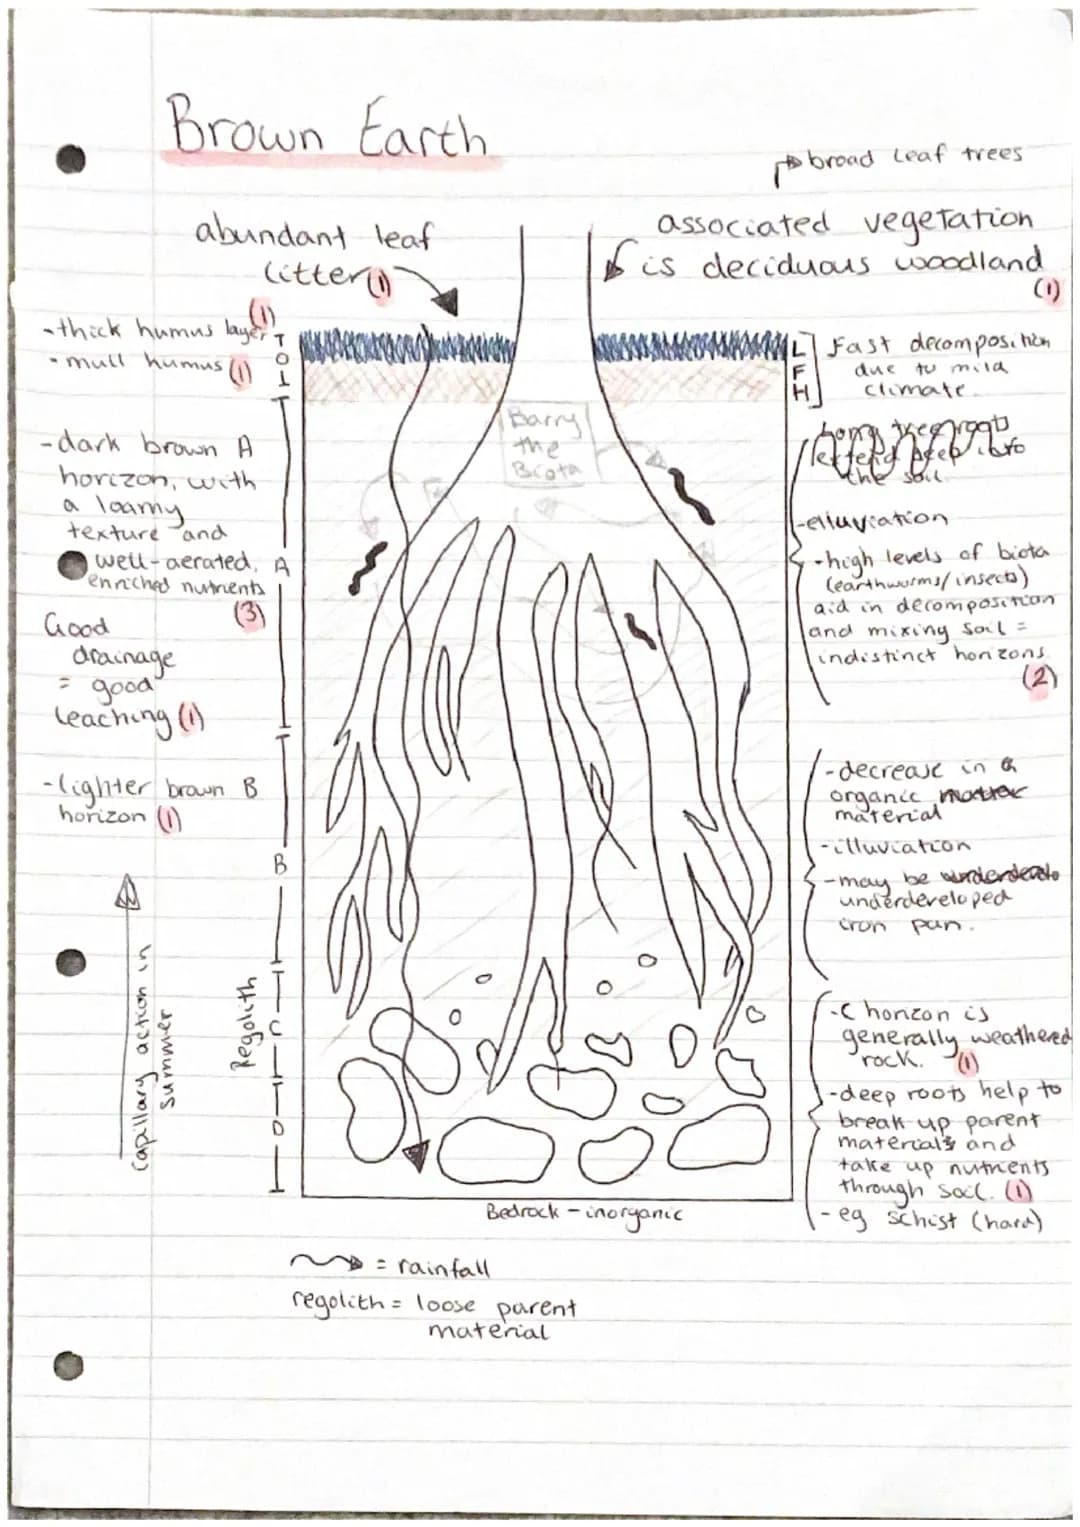 Brown Earth
broad leaf trees
abundant leaf
litter (1)
associated vegetation
is deciduous woodland
(1)
- thick humus layer (1)
- mull humus (1)
O
L
F
H
Fast decomposition
due to mild
climate.
Barry
the
Biota
Long tree roots
extend deep into
the soil.
- dark brown A
horizon, with
a loamy
texture and
well-aerated,
enriched nutrients
(3)
A
Good
drainage
= good
leaching (1)
- elluviation
- high levels of biota
(earthworms/insects)
aid in decomposition
and mixing soil =
indistinct horizons
(2)
- lighter brown B
horizon (1)
B
- decrease in
organic matter
material
- illuviation
- may be
underdeveloped
iron pan.
Capillary action in
summer
Regolith
C
D
- C horizon is
generally weathered
rock. (1)
- deep roots help to
break up parent
materials and
take up nutrients
through soil. (1)
- eg schist (hard)
Bedrock - inorganic
= rainfall
regolith = loose parent
material